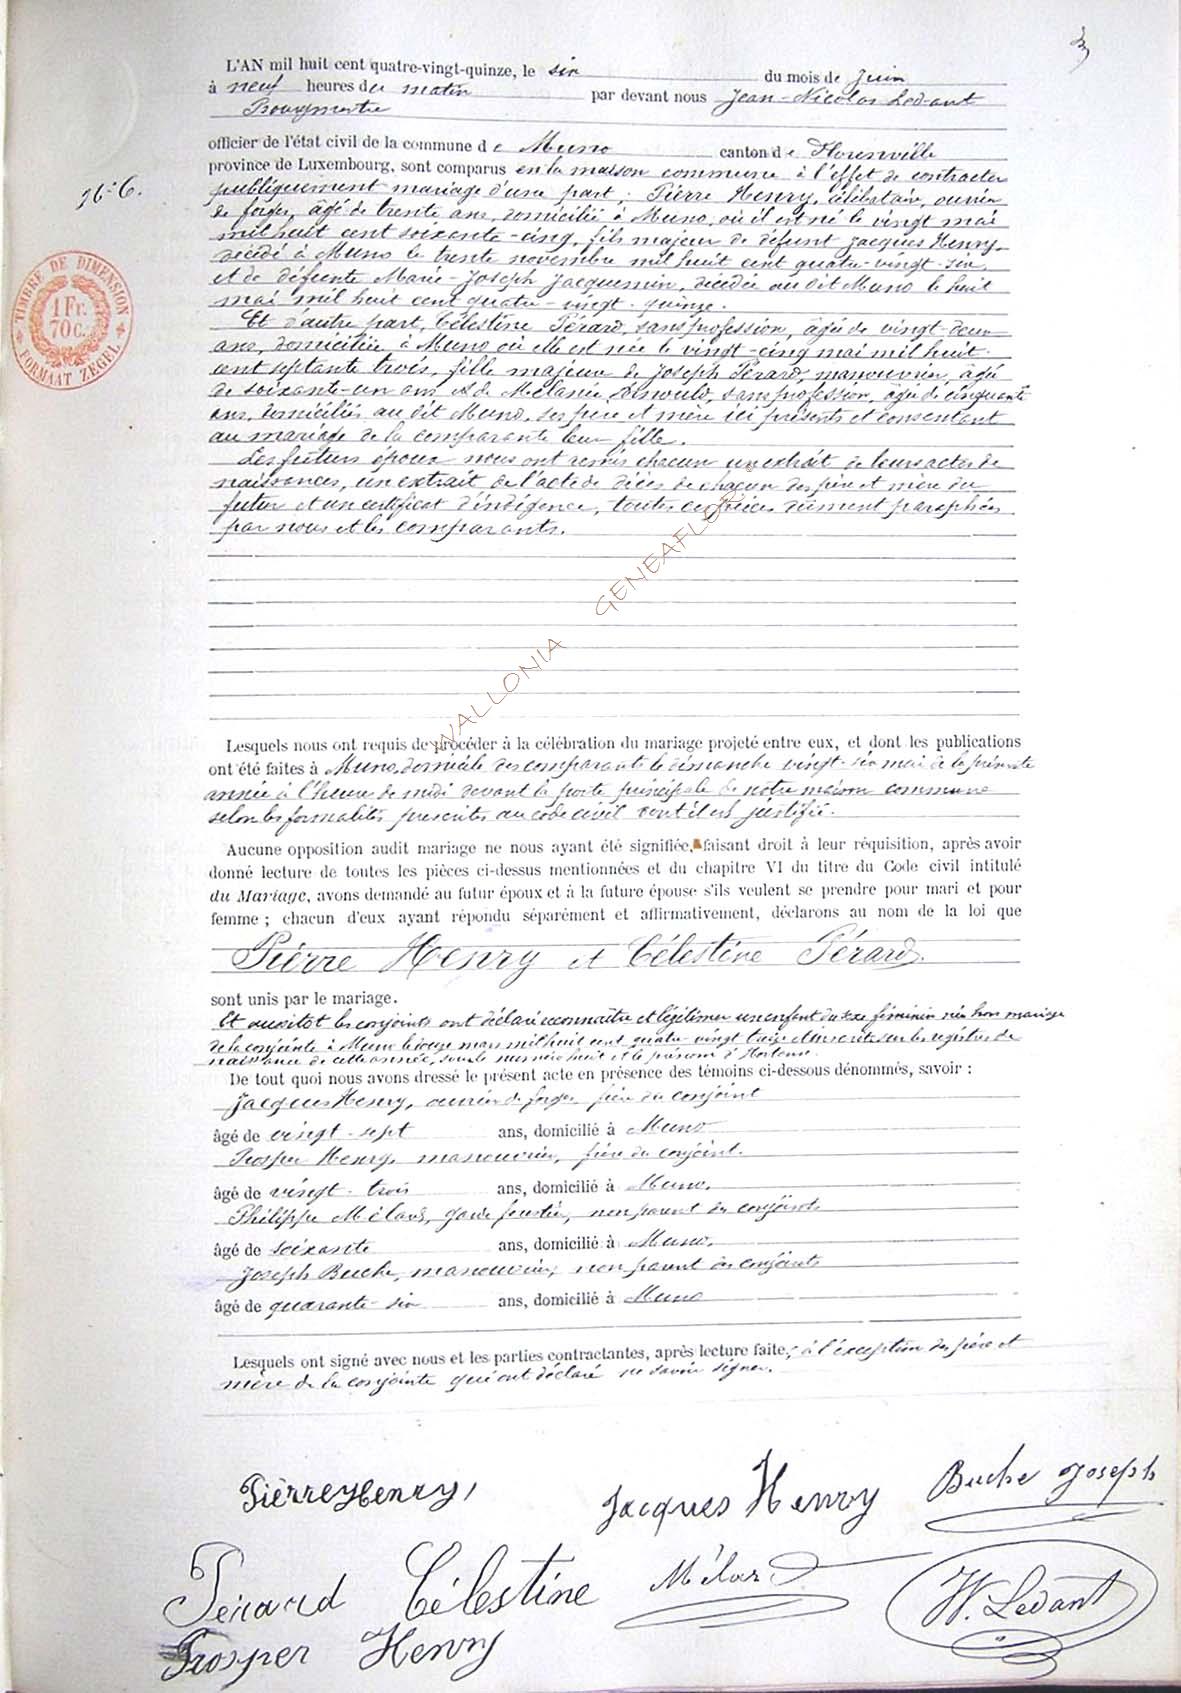 3
L'AN mil huit cent quatre-vingt-quinze, le six du mois de Juin
à neuf heures du matin par devant nous Jean-Nicolas Ledant
Bourgmestre
officier de l'état civil de la commune de Muno canton de Florenville
province de Luxembourg, sont comparus en la maison commune à l'effet de contracter
N° 6.
publiquement mariage d'une part, Pierre Henry, célibataire, ouvrier
de forges, âgé de trente ans, domicilié à Muno, où il est né le vingt mai
mil huit cent soixante-cinq, fils majeur de défunt Jacques Henry,
décédé à Muno le trente novembre mil huit cent quatre-vingt-six
et de défunte Marie-Joseph Jacquemin, décédée au dit Muno le huit
mai mil huit cent quatre-vingt-quinze.
TIMBRE DE DIMENSION
1 Fr.
70 c.
FORMAAT ZEGEL
Et d'autre part, Célestine Pérard, sans profession, âgée de vingt-deux
ans, domiciliée à Muno où elle est née le vingt-cinq mai mil huit
cent septante trois, fille majeur de Joseph Pérard, manouvrier, âgé
de soixante-un ans et de Mélanie sans profession, âgée de cinquante
ans, domiciliés au dit Muno, ses père et mère ici présents et consentant
au mariage de la comparante leur fille.
Les futurs époux nous ont remis chacun un extrait de leurs actes de
naissances, un extrait de l'acte de décès de chacun des père et mère du
futur et un certificat d'indigence, toutes ces pièces dûment paraphées
par nous et les comparants.
WALLONIA GENEAFLOR
Lesquels nous ont requis de procéder à la célébration du mariage projeté entre eux, et dont les publications
ont été faites à Muno, domicile des comparants le dimanche vingt-six mai de la présente
année à l'heure de midi devant la porte principale de notre maison commune
selon les formalités prescrites au code civil dont il est justifié.
Aucune opposition audit mariage ne nous ayant été signifiée, faisant droit à leur réquisition, après avoir
donné lecture de toutes les pièces ci-dessus mentionnées et du chapitre VI du titre du Code civil intitulé
du Mariage, avons demandé au futur époux et à la future épouse s'ils veulent se prendre pour mari et pour
femme ; chacun d'eux ayant répondu séparément et affirmativement, déclarons au nom de la loi que
Pierre Henry et Célestine Pérard.
sont unis par le mariage.
Et aussitôt les conjoints ont déclaré reconnaître et légitimer un enfant du sexe féminin née hors mariage
de la conjointe à Muno le mars mil huit cent quatre vingt treize et inscrite sur les registres de
naissance de cette année, sous le numéro huit et le prénom d'Hortense.
De tout quoi nous avons dressé le présent acte en présence des témoins ci-dessous dénommés, savoir :
Jacques Henry, ouvrier de forges frère du conjoint
âgé de vingt-sept ans, domicilié à Muno
Prosper Henry, manouvrier, frère du conjoint.
âgé de vingt-trois ans, domicilié à Muno.
Philippe Mélard, garde forestier, non parent des conjoints
âgé de soixante ans, domicilié à Muno.
Joseph Buche, manouvrier, non parent des conjoints
âgé de quarante-six ans, domicilié à Muno
Lesquels ont signé avec nous et les parties contractantes, après lecture faite, à l'exception des père et
mère de la conjointe qui ont déclaré ne savoir signer.
Pierre Henry, Jacques Henry Buche Joseph
Pérard Célestine Mélard W. Ledant
Prosper Henry